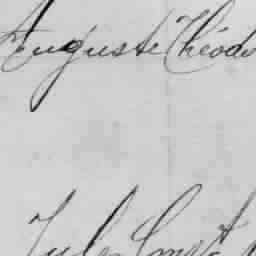 Auguste Théodo
Jules Const